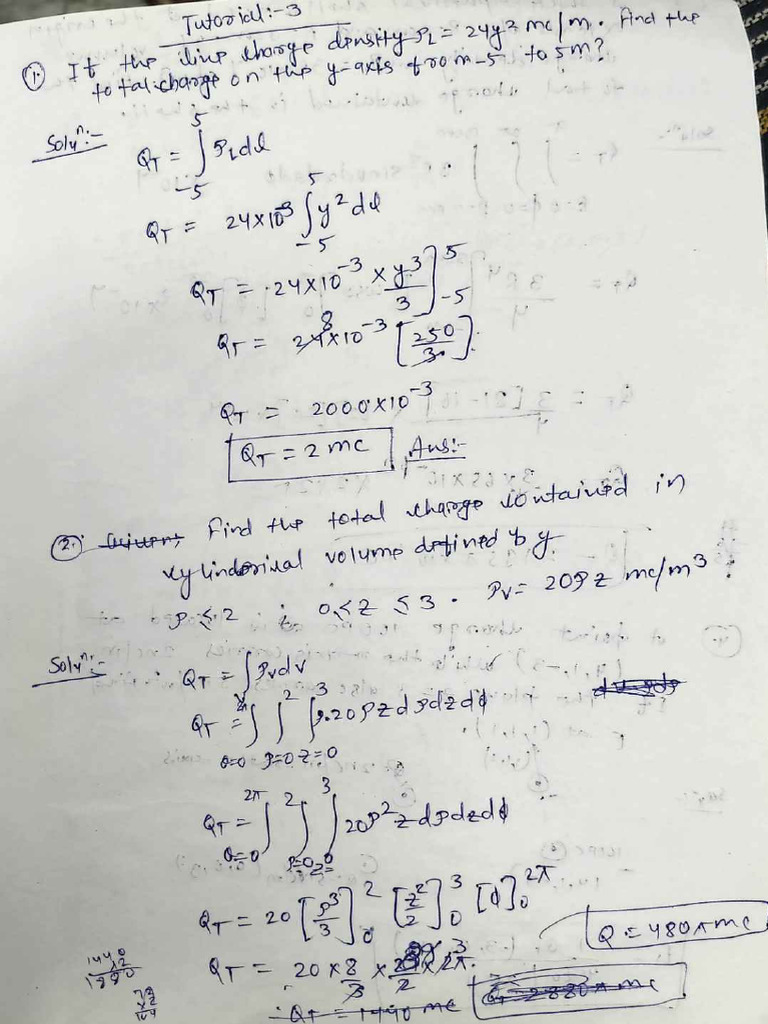 Tutorial:-3
① If the line charge density ρL = 24y² mc/m. find the
total charge on the y-axis from -5 to 5m?
Soluⁿ:-
QT = ∫₋₅⁵ ρL dl
QT = 24×10⁻³ ∫₋₅⁵ y² dl
QT = 24×10⁻³ × y³/3 ]₋₅⁵
QT = 24×10⁻³ [250/3] 8
QT = 2000×10⁻³
QT = 2 mc Ans:-
② Find the total charge contained in
cylinderical volume defined by
ρ ≤ 2 ; 0 ≤ z ≤ 3. ρv = 20ρz mc/m³
Soluⁿ:-
QT = ∫v ρv dv
QT = ∫ ∫² ∫³ ρ.20ρz dρdzdϕ
θ=0 ρ=0 z=0
QT = ∫^2π ∫² ∫³ 20ρ²z dρdzdϕ
θ=0 ρ=0 z=0
QT = 20 [ρ³/3]₀² [z²/2]₀³ [ϕ]₀^2π
Q = 480π mc
QT = 20 × 8/3 × /2 × 2π.
QT = 1440 mc